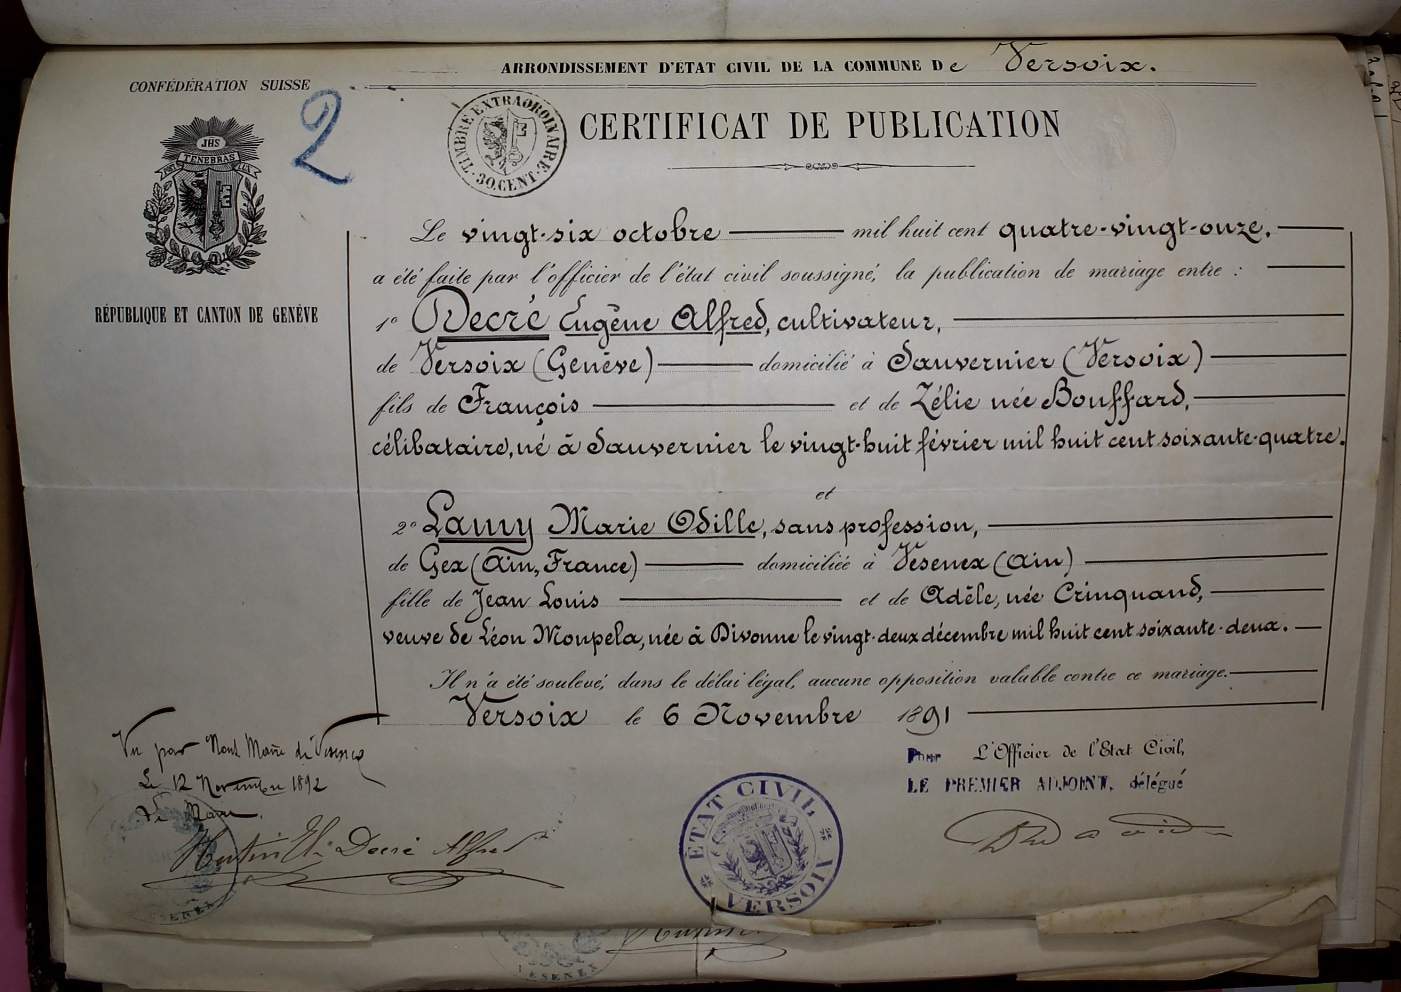 ARRONDISSEMENT D'ETAT CIVIL DE LA COMMUNE De Versoix.
CONFÉDÉRATION SUISSE
2
JHS
POST TENEBRAS LUX
TIMBRE EXTRAORDINAIRE
30. CENT.
CERTIFICAT DE PUBLICATION
RÉPUBLIQUE ET CANTON DE GENÈVE
Le vingt-six octobre mil huit cent quatre-vingt-onze,
a été faite par l'officier de l'état civil soussigné, la publication de mariage entre :
1° Decré Eugène Alfred, cultivateur,
de Versoix (Genève) domicilié à Sauvernier (Versoix)
fils de François et de Zélie née Bouffard,
célibataire, né à Sauvernier le vingt-huit février mil huit cent soixante-quatre.
et
2° Lamy Marie Odille, sans profession,
de Gex (Ain, France) domiciliée à Vesenex (Ain)
fille de Jean Louis et de Adèle, née Crinquand,
veuve de Léon Monpela, née à Divonne le vingt-deux décembre mil huit cent soixante-deux.
Il n'a été soulevé, dans le délai légal, aucune opposition valable contre ce mariage.
Versoix le 6 Novembre 1891
Vu par Nous Maire de Vesenex
Le 12 Novembre 1892
Le Maire.
Decré Alfred
Pour L'Officier de l'Etat Civil,
LE PREMIER ADJOINT, délégué
ETAT CIVIL
VERSOIX
VESENEX
VESENEX